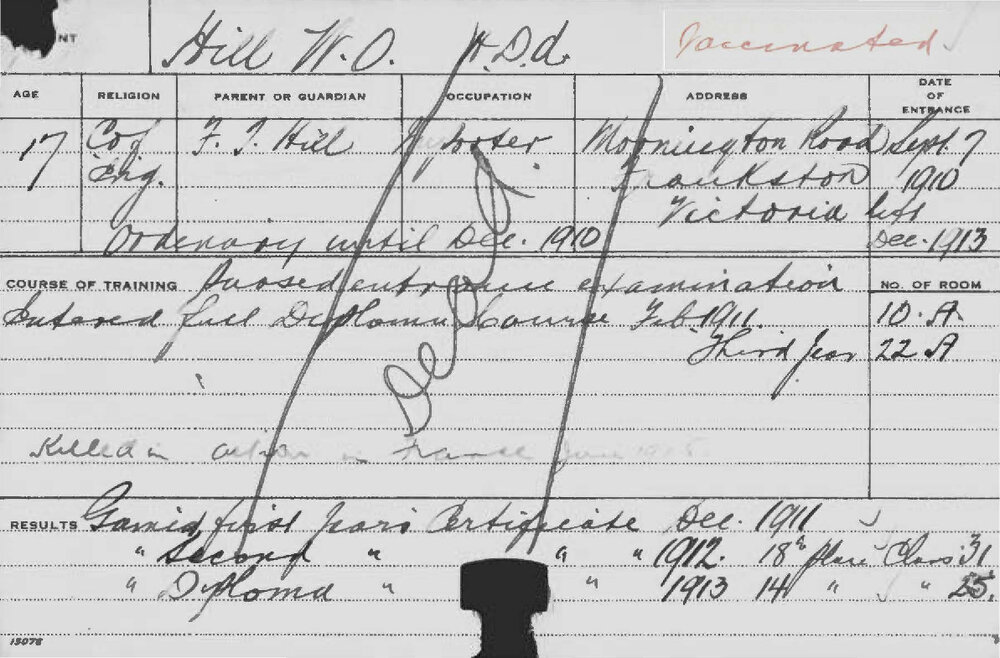 NT Hill W. O. H.D.d. Vaccinated
AGE RELIGION PARENT OR GUARDIAN OCCUPATION ADDRESS DATE OF ENTRANCE
17 C of F. T. Hill Moonington Road Sept. 7
Eng. Frankston 1910
Victoria left
Ordinary until Dec. 1910 Dec. 1913
COURSE OF TRAINING Passed entrance examination NO. OF ROOM
Entered full Diploma Course Feb 1911. 10. A
Third year 22 A
Dead
Killed in action in France
RESULTS Gained first years Certificate Dec. 1911
" Second " " " 1912. 18th place Class 31
" Diploma " " 1913 14 " " 25.
13078